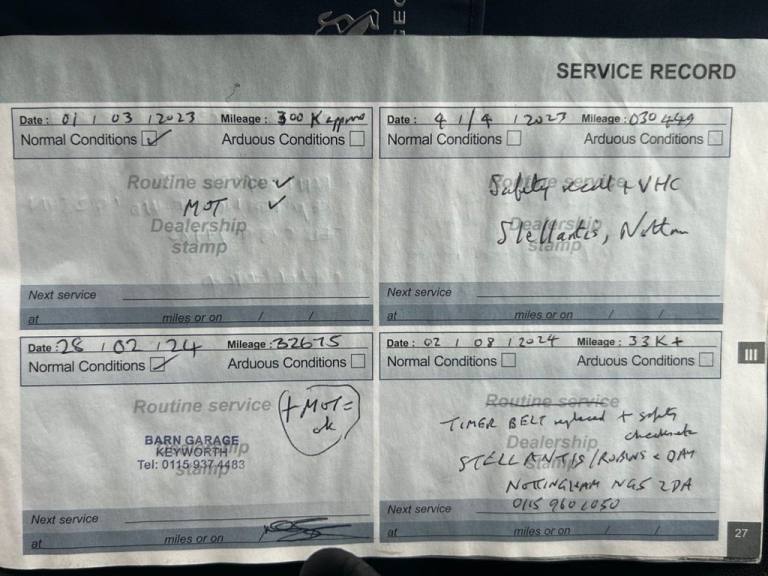 GEO
SERVICE RECORD
Date: 01 / 03 / 2023 Mileage: 300 K approx
Normal Conditions ✓ Arduous Conditions
Routine service ✓
MOT ✓
Dealership
stamp
Next service
at miles or on / /
Date: 4 / 4 / 2023 Mileage: 030449
Normal Conditions Arduous Conditions
Routine service
Safety recall + VHC
Dealership
Stellantis, Nottm
stamp
Next service
at miles or on / /
Date: 28 / 02 / 24 Mileage: 32675
Normal Conditions ✓ Arduous Conditions
Routine service + MOT =
ok
BARN GARAGE
Dealership
KEYWORTH
Tel: 0115 937 4483
stamp
Next service
at miles or on
Date: 02 / 08 / 2024 Mileage: 33K+
Normal Conditions Arduous Conditions
Routine service
TIMER BELT replaced + safety
checks
Dealership
STELLANTIS / ROBINS & DAY
stamp
NOTTINGHAM NG5 2DA
0115 960
Next service
at miles or on / /
III
27